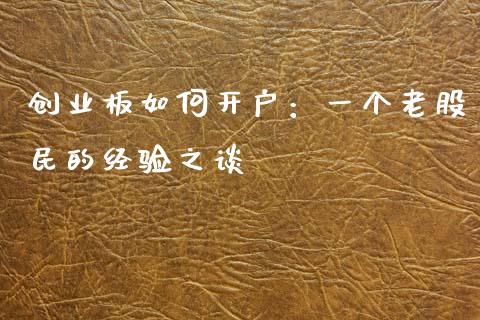 创业板如何开户：一个老股
民的经验之谈